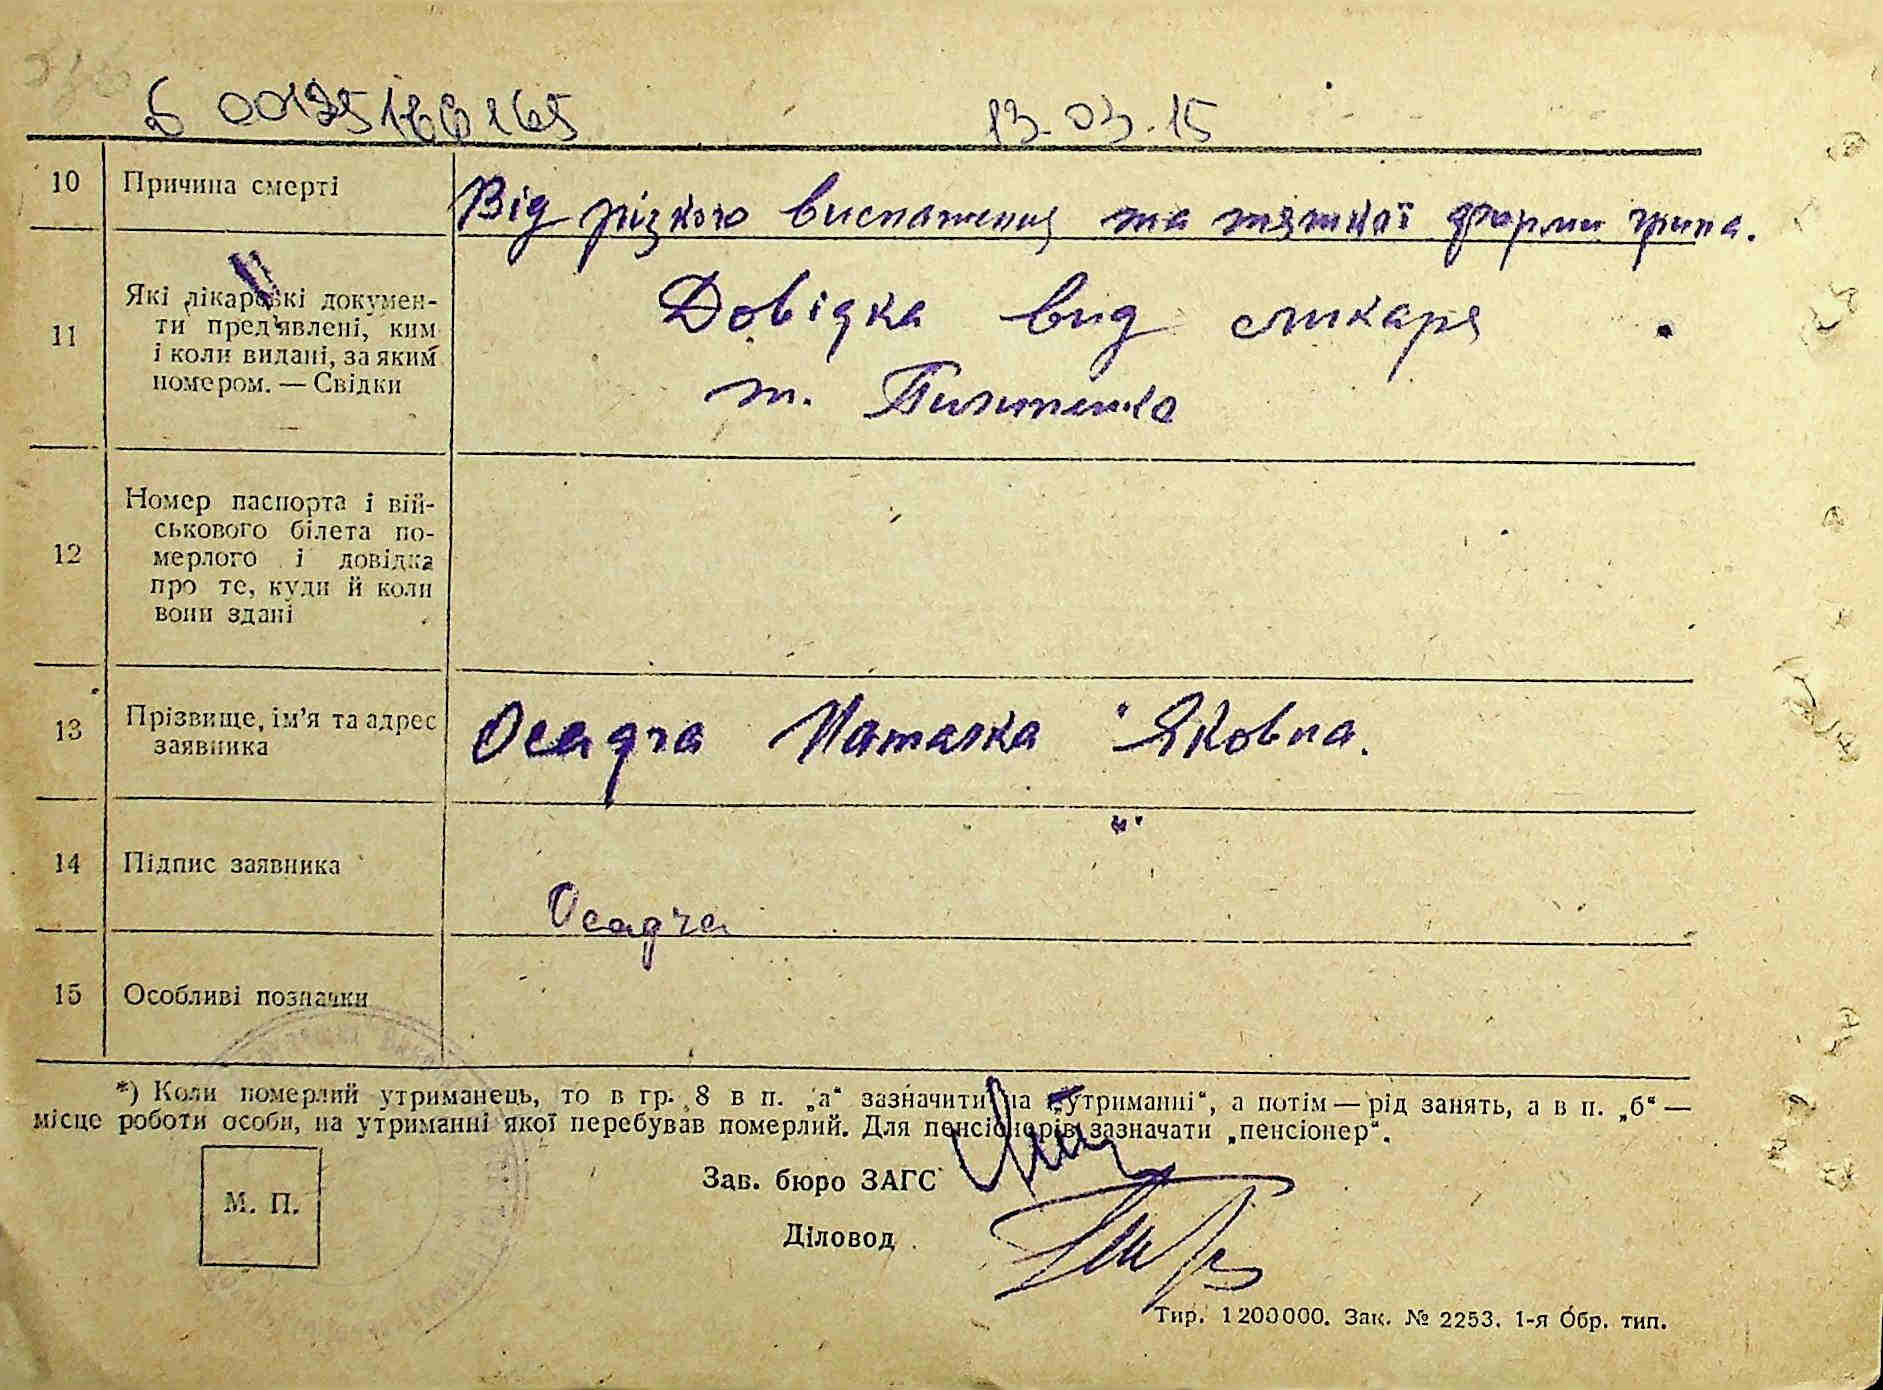 00125166165 13.03.15
10 Причина смерті Від різкого виснаження та тяжкої форми грипа.
11 Які лікарські докумен-
ти пред'явлені, ким
і коли видані, за яким
номером. — Свідки
Довідка вид ликаря
т.
12 Номер паспорта і вій-
ськового білета по-
мерлого і довідка
про те, куди й коли
вони здані
13 Прізвище, ім'я та адрес
заявника
Осадча Наталка Яковна.
14 Підпис заявника
Осадча
15 Особливі позначки
*) Коли померлий утриманець, то в гр. 8 в п. „а“ зазначити на „утриманні“, а потім — рід занять, а в п. „б“ —
місце роботи особи, на утриманні якої перебував померлий. Для пенсіонерів зазначати „пенсіонер“.
М. П.
Зав. бюро ЗАГС
Діловод
Тир. 1200000. Зак. № 2253. 1-я Обр. тип.